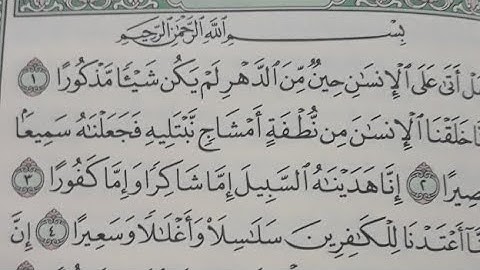 بِسْمِ ٱللَّهِ ٱلرَّحْمَٰنِ ٱلرَّحِيمِ
هَلْ أَتَىٰ عَلَى ٱلْإِنسَٰنِ حِينٌ مِّنَ ٱلدَّهْرِ لَمْ يَكُن شَيْـًٔا مَّذْكُورًا ١
نَّا خَلَقْنَا ٱلْإِنسَٰنَ مِن نُّطْفَةٍ أَمْشَاجٍ نَّبْتَلِيهِ فَجَعَلْنَٰهُ سَمِيعًۢا
صِيرًا ٢ إِنَّا هَدَيْنَٰهُ ٱلسَّبِيلَ إِمَّا شَاكِرًا وَإِمَّا كَفُورًا ٣
نَّآ أَعْتَدْنَا لِلْكَٰفِرِينَ سَلَٰسِلَا۟ وَأَغْلَٰلًا وَسَعِيرًا ٤ إِنَّ